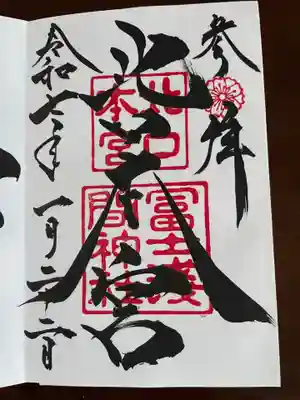 参拝
北口本宮
北口
本宮
冨士淺
間神社
令和七年一月二十二日